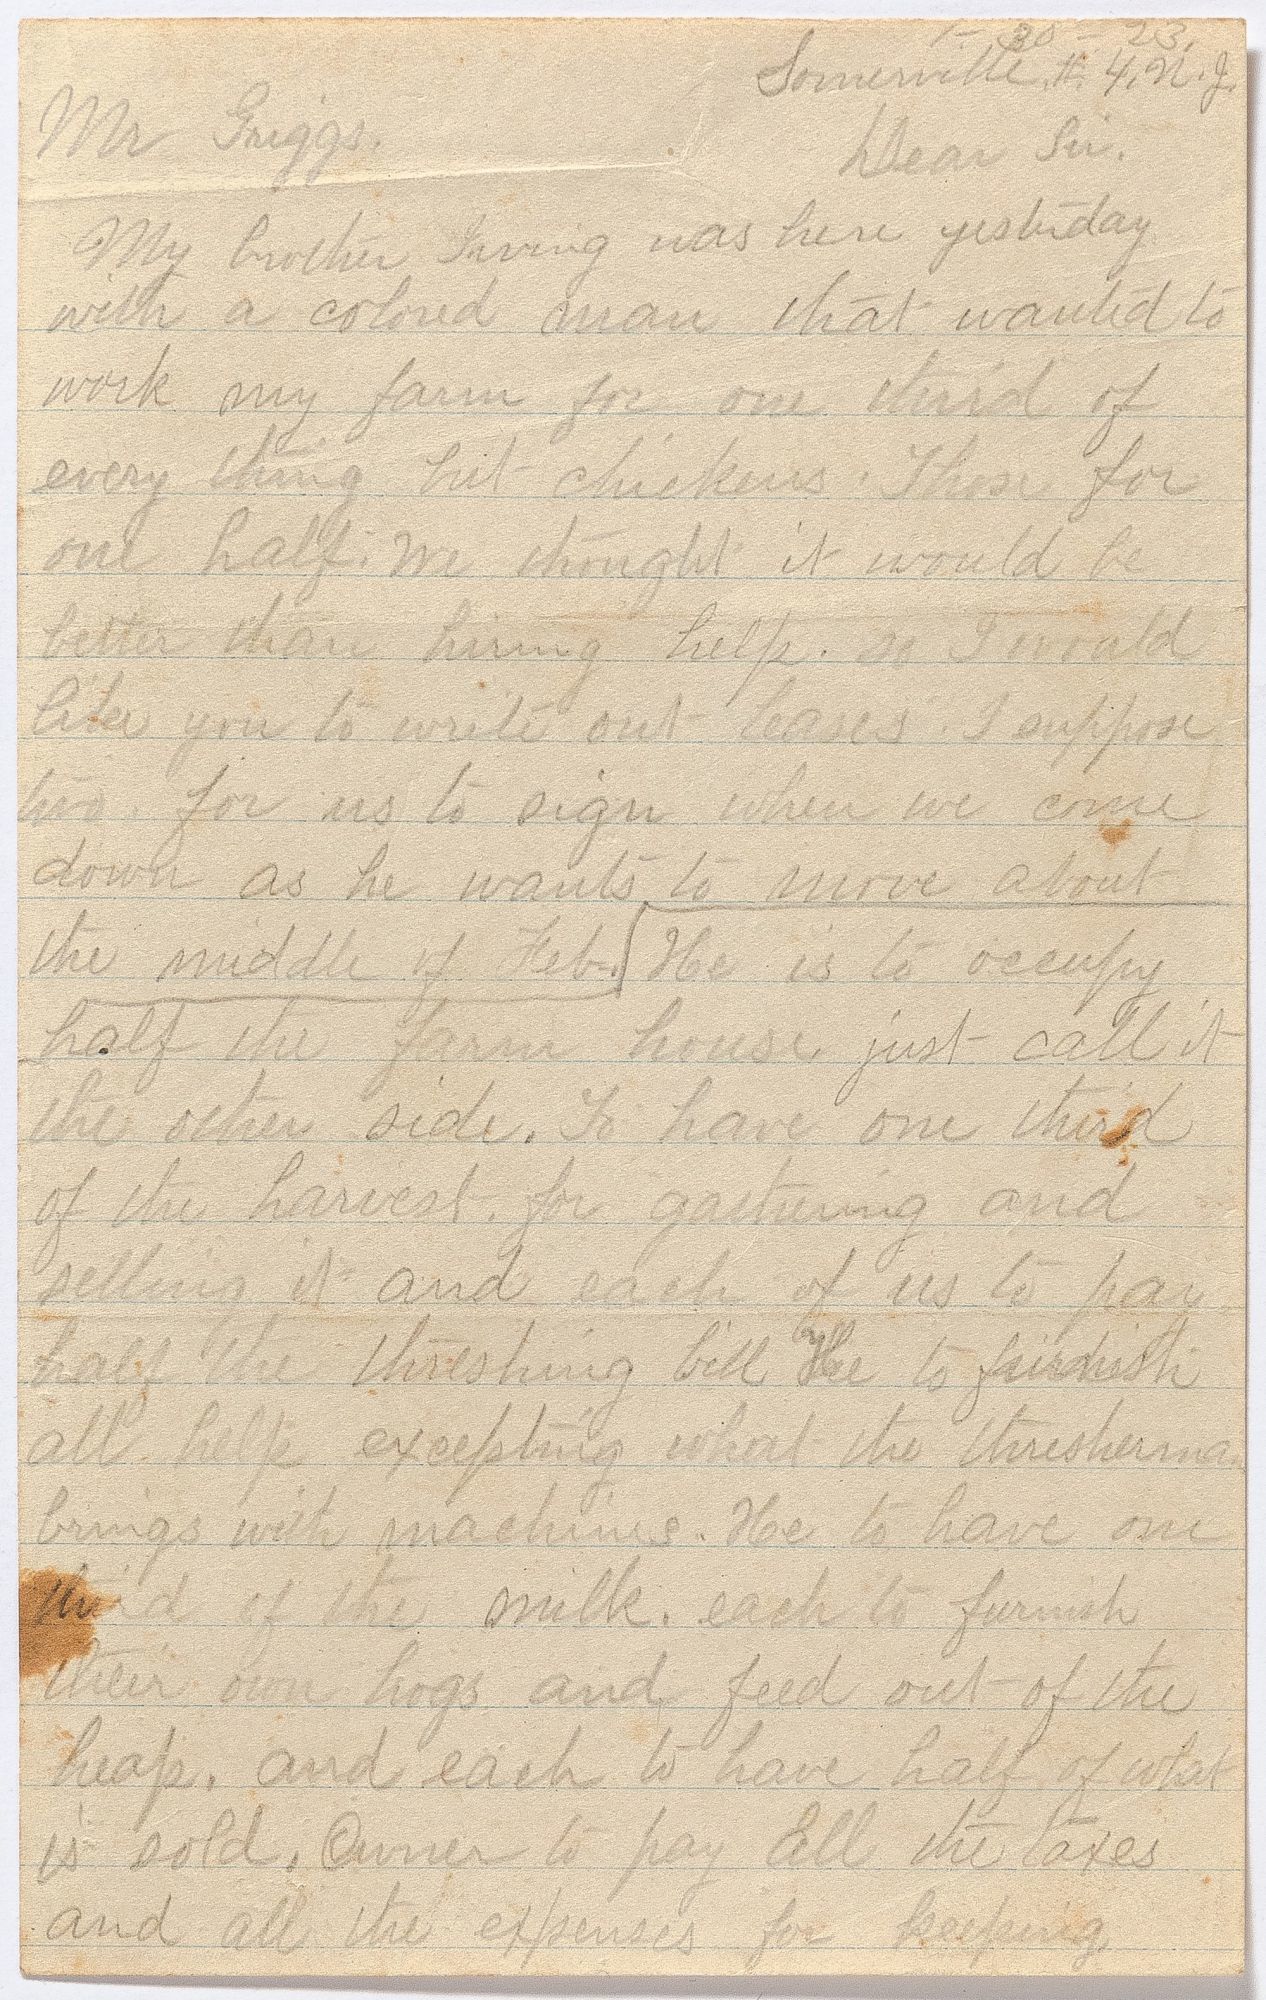 1-30-23.
Somerville. #. 4, N.J.
Mr Griggs.
Dear Sir.
My brother Irving was here yesterday
with a colored man that wanted to
work my farm for one third of
every thing but chickens. Those for
one half. We thought it would be
better than hiring help. so I would
like you to write out leases. I suppose
two. for us to sign when we come
down as he wants to move about
the middle of Feb. He is to occupy
half the farm house. just call it
the other side. To have one third
of the harvest. for gathering and
selling it and each of us to pay
half the threshing bill He to furnish
all help excepting what the thresherma
brings with machines. He to have one
third of the milk. each to furnish
their own hogs and feed out of the
heap. and each to have half of what
is sold. Owner to pay all the taxes
and all the expenses for keeping